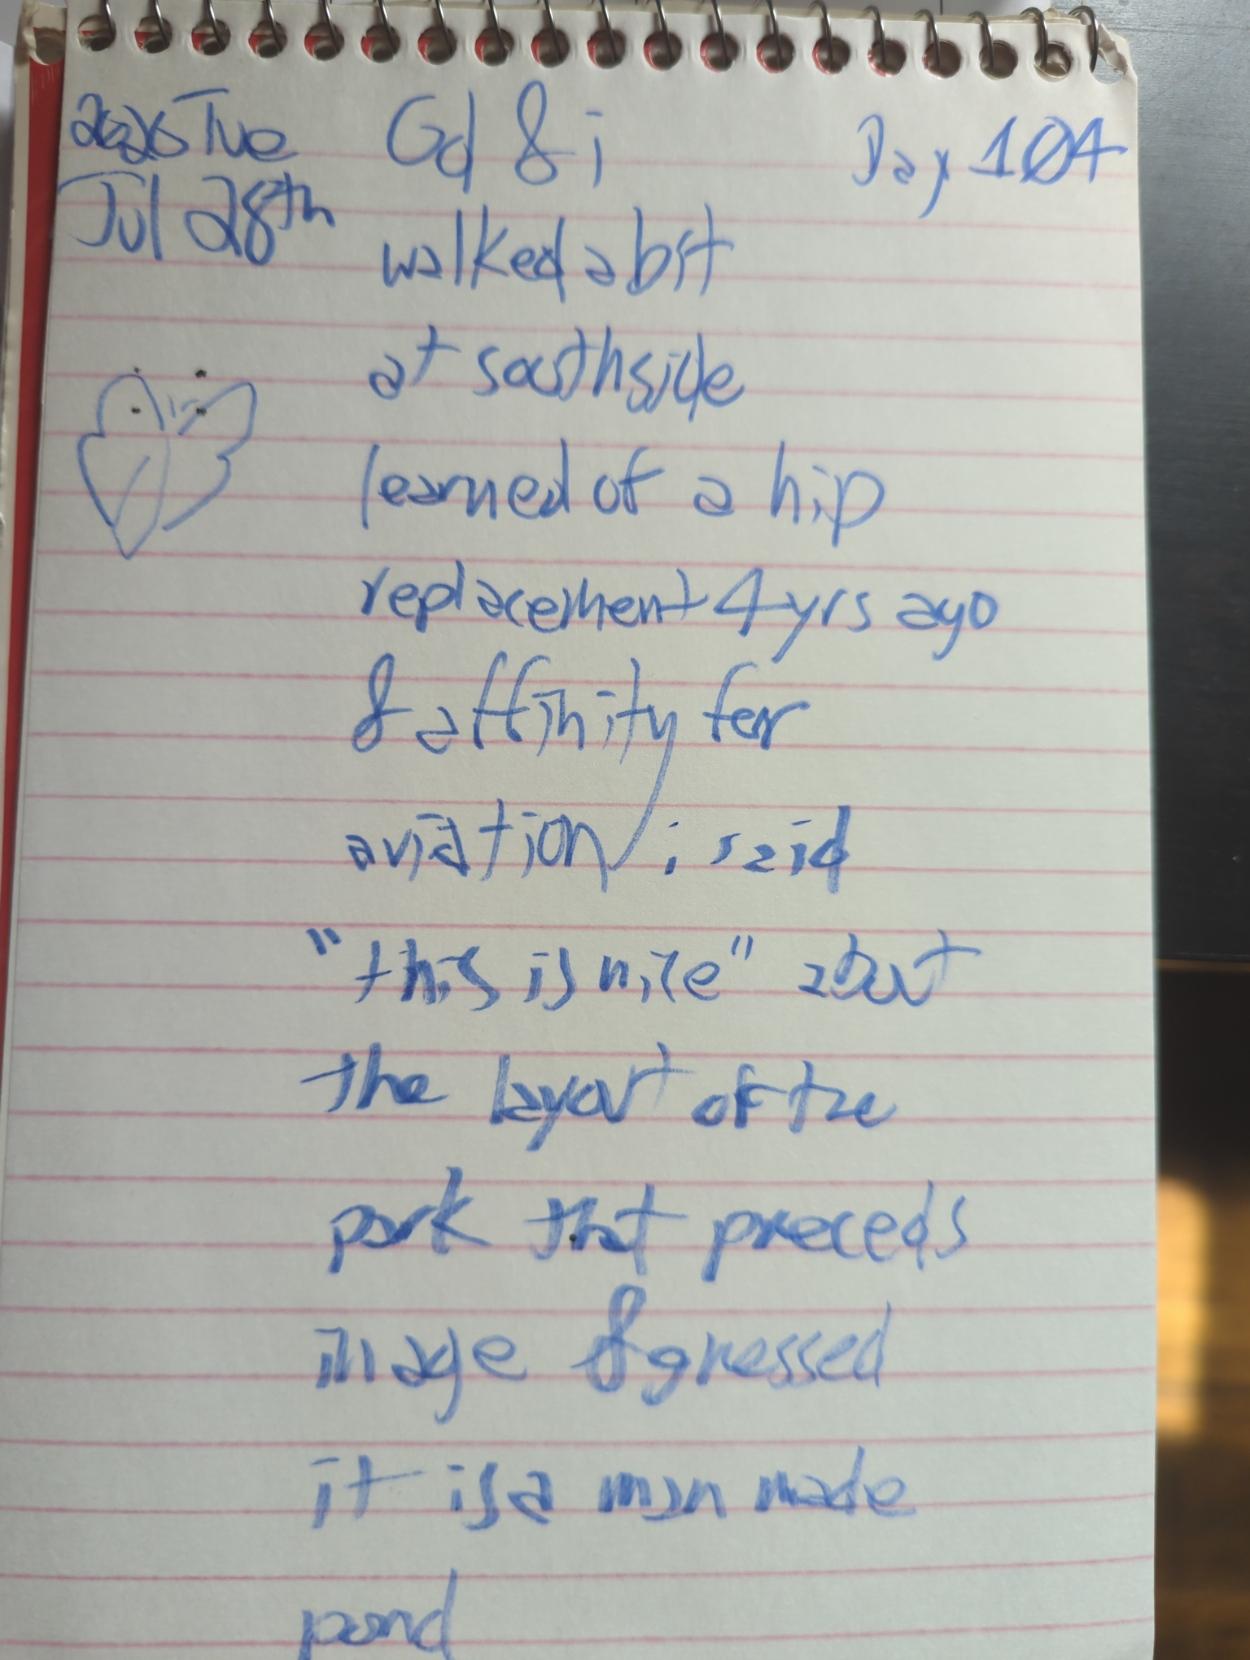 2026 Tue Gd & i Day 104
Jul 28th walked a bit
at southside
learned of a hip
replacement 4 yrs ago
& affinity for
aviation, i said
"this is nice" about
the layout of the
park that preceds
image & guessed
it is a man made
pond